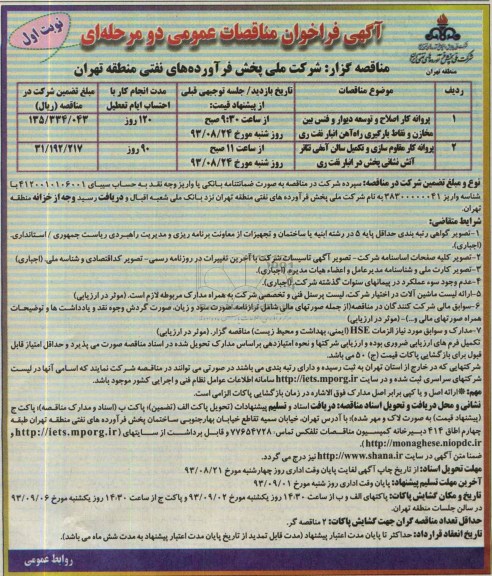 آگهی فراخوان مناقصات عمومی دو مرحله‌ای
نوبت اول
منطقه تهران
مناقصه گزار: شرکت ملی پخش فرآورده‌های نفتی منطقه تهران
ردیف
موضوع مناقصات
تاریخ بازدید/ جلسه توجیهی قبلی از پیشنهاد قیمت:
مدت انجام کار با احتساب ایام تعطیل
مبلغ تضمین شرکت در مناقصه (ریال)
۱
پروانه کار اصلاح و توسعه دیوار و فنس بین مخازن و نقاط بارگیری راه‌آهن انبار نفت ری
از ساعت ۹:۳۰ صبح روز شنبه مورخ ۹۳/۰۸/۲۴
۱۲۰ روز
۱۳۵/۳۳۴/۰۴۳
۲
پروانه کار مقاوم سازی و تکمیل سالن آمفی تئاتر آتش نشانی پخش در انبار نفت ری
از ساعت ۱۱ صبح روز شنبه مورخ ۹۳/۰۸/۲۴
۹۰ روز
۳۱/۱۹۲/۲۱۷
نوع و مبلغ تضمین شرکت در مناقصه: سپرده شرکت در مناقصه به صورت ضمانتنامه بانکی یا واریز وجه نقد به حساب سیبای ۴۱۲۰۰۱۰۱۰۶۰۰۱ با
شناسه واریز ۳۸۳۰۰۰۰۰۰۴۱ به نام شرکت ملی پخش فرآورده های نفتی منطقه تهران نزد بانک ملی شعبه اقبال و دریافت رسید وجه از خزانه منطقه
تهران.
شرایط متقاضی:
۱-تصویر گواهی رتبه بندی حداقل پایه ۵ در رشته ابنیه یا ساختمان و تجهیزات از معاونت برنامه ریزی و مدیریت راهبردی ریاست جمهوری / استانداری.
(اجباری).
۲-تصویر کلیه صفحات اساسنامه شرکت - تصویر آگهی تاسیسات شرکت با آخرین تغییرات در روزنامه رسمی- تصویر کداقتصادی و شناسه ملی. (اجباری)
۳-تصویر کارت ملی و شناسنامه مدیرعامل و اعضاء هیات مدیره (اجباری).
۴-عدم وجود سوء عملکرد در پیمانهای سنوات گذشته شرکت. (اجباری).
۵-ارائه لیست ماشین آلات در اختیار شرکت، لیست پرسنل فنی و تخصصی شرکت به همراه مدارک مربوطه لازم است. (موثر در ارزیابی)
۶-سوابق مالی شرکت کنندگان در مناقصه(از جمله صورتهای مالی شامل ترازنامه، صورت سود و زیان، صورت گردش وجوه نقد و یادداشت ها و توضیحات
همراه صورتهای مالی و...)-(موثر در ارزیابی)
۷-مدارک و سوابق مورد نیاز الزامات HSE (ایمنی، بهداشت و محیط زیست) مناقصه گزار. (موثر در ارزیابی)
تکمیل فرم های ارزیابی ضروری بوده و ارزیابی شرکتها و نحوه امتیازدهی براساس مدارک تحویل شده در اسناد مناقصه صورت می پذیرد و حداقل امتیاز قابل
قبول برای بازگشایی پاکات قیمت (ج) ۵۰ می باشد.
شرکتهایی که در خارج از استان تهران به ثبت رسیده و دارای رتبه بندی می باشند در صورتی می توانند در مناقصه شرکت نمایند که اسامی آنها در لیست
شرکتهای سراسری ثبت شده و در سایت http://iets.mporg.ir سامانه اطلاعات عوامل نظام فنی و اجرایی کشور موجود باشد.
مهم: *ارائه اصل و یا کپی برابر اصل مدارک فوق الاشاره در زمان بازگشایی پاکات الزامی است.
نشانی و محل دریافت و تحویل اسناد مناقصه: دریافت اسناد و تسلیم پیشنهادات (تحویل پاکت الف (تضمین)، پاکت ب (اسناد و مدارک مناقصه)، پاکت ج
(پیشنهاد قیمت) به صورت لاک و مهر شده)، با آدرس تهران، خیابان سمیه تقاطع خیابان بهارجنوبی ساختمان پخش فرآورده های نفتی منطقه تهران طبقه
چهارم اطاق ۴۱۴ دبیرخانه کمیسیون مناقصات تلفکس تماس: ۷۷۶۵۴۷۲۸ و قابل برداشت از سایتهای (http://iets.mporg.ir و
http://monaghese.niopdc.ir).
ضمنا متن آگهی در سایت http://www.shana.ir نیز درج می گردد.
مهلت تحویل اسناد: از تاریخ چاپ آگهی لغایت پایان وقت اداری روز چهارشنبه مورخ ۹۳/۰۸/۲۱
آخرین مهلت تسلیم پیشنهاد: پایان وقت اداری روز شنبه مورخ ۹۳/۰۹/۰۱
تاریخ و مکان گشایش پاکات: پاکتهای الف و ب از ساعت ۱۴:۳۰ روز یکشنبه مورخ ۹۳/۰۹/۰۲ و پاکت ج از ساعت ۱۴:۳۰ روز یکشنبه مورخ ۹۳/۰۹/۰۶
در سالن جلسات منطقه تهران.
حداقل تعداد مناقصه گران جهت گشایش پاکات: ۲ مناقصه گر.
تاریخ انعقاد قرارداد: حداکثر تا پایان مدت اعتبار پیشنهاد (مدت قابل تمدید از تاریخ پایان مدت اعتبار پیشنهاد به مدت شش ماه می باشد).
روابط عمومی